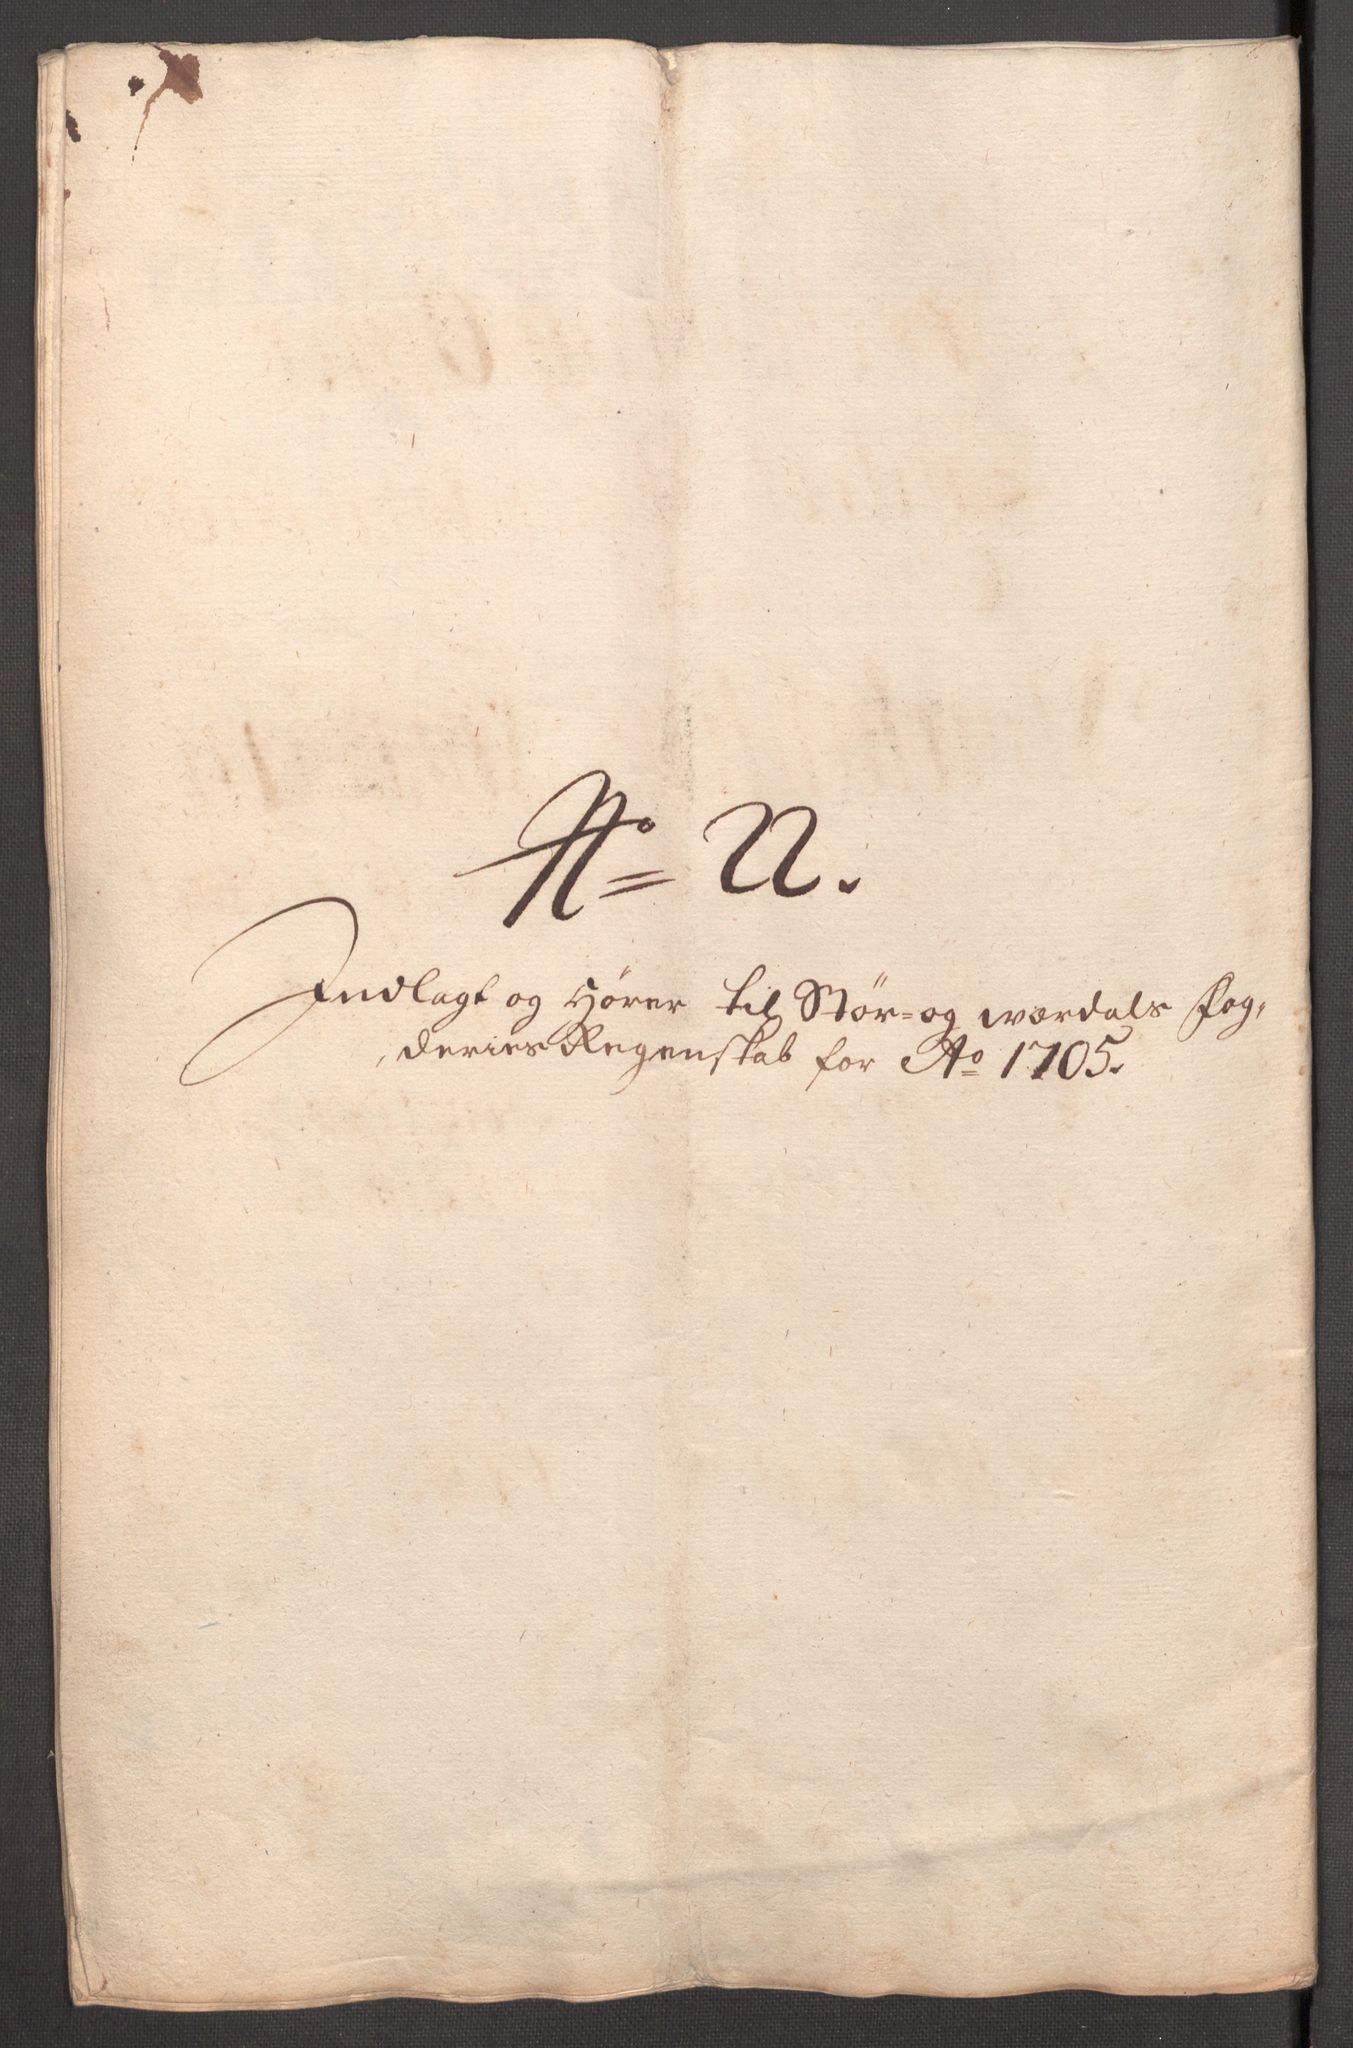 No 22.
Indlagt og Hører til Stør- og værdals Fog,
,deries Regenskab for Ao 1705.